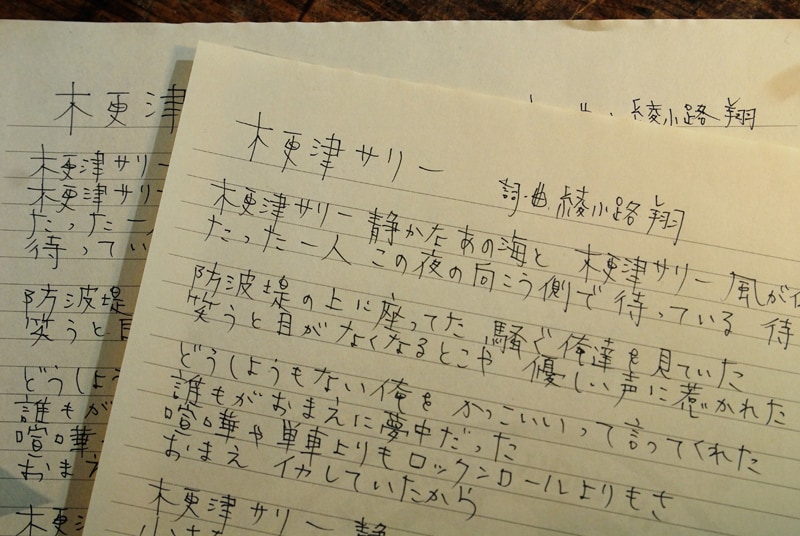 木更津
綾小路 翔
木更津サリー
木更津サリー
たった一
待ってい
防波堤
笑うと目
どうしよう
誰もが
喧嘩
おまえ
木更
木更津サリー
詞・曲 綾小路 翔
木更津サリー 静かなあの海と 木更津サリー 風が
たった一人 この夜の向こう側で 待っている 待
防波堤の上に座ってた 騒ぐ俺達を見ていた
笑うと目がなくなるとこや 優しい声に惹かれた
どうしようもない俺を かっこいいって言ってくれた
誰もがおまえに夢中だった
喧嘩や単車よりもロックンロールよりもさ
おまえ イカしていたから
木更津サリー 静